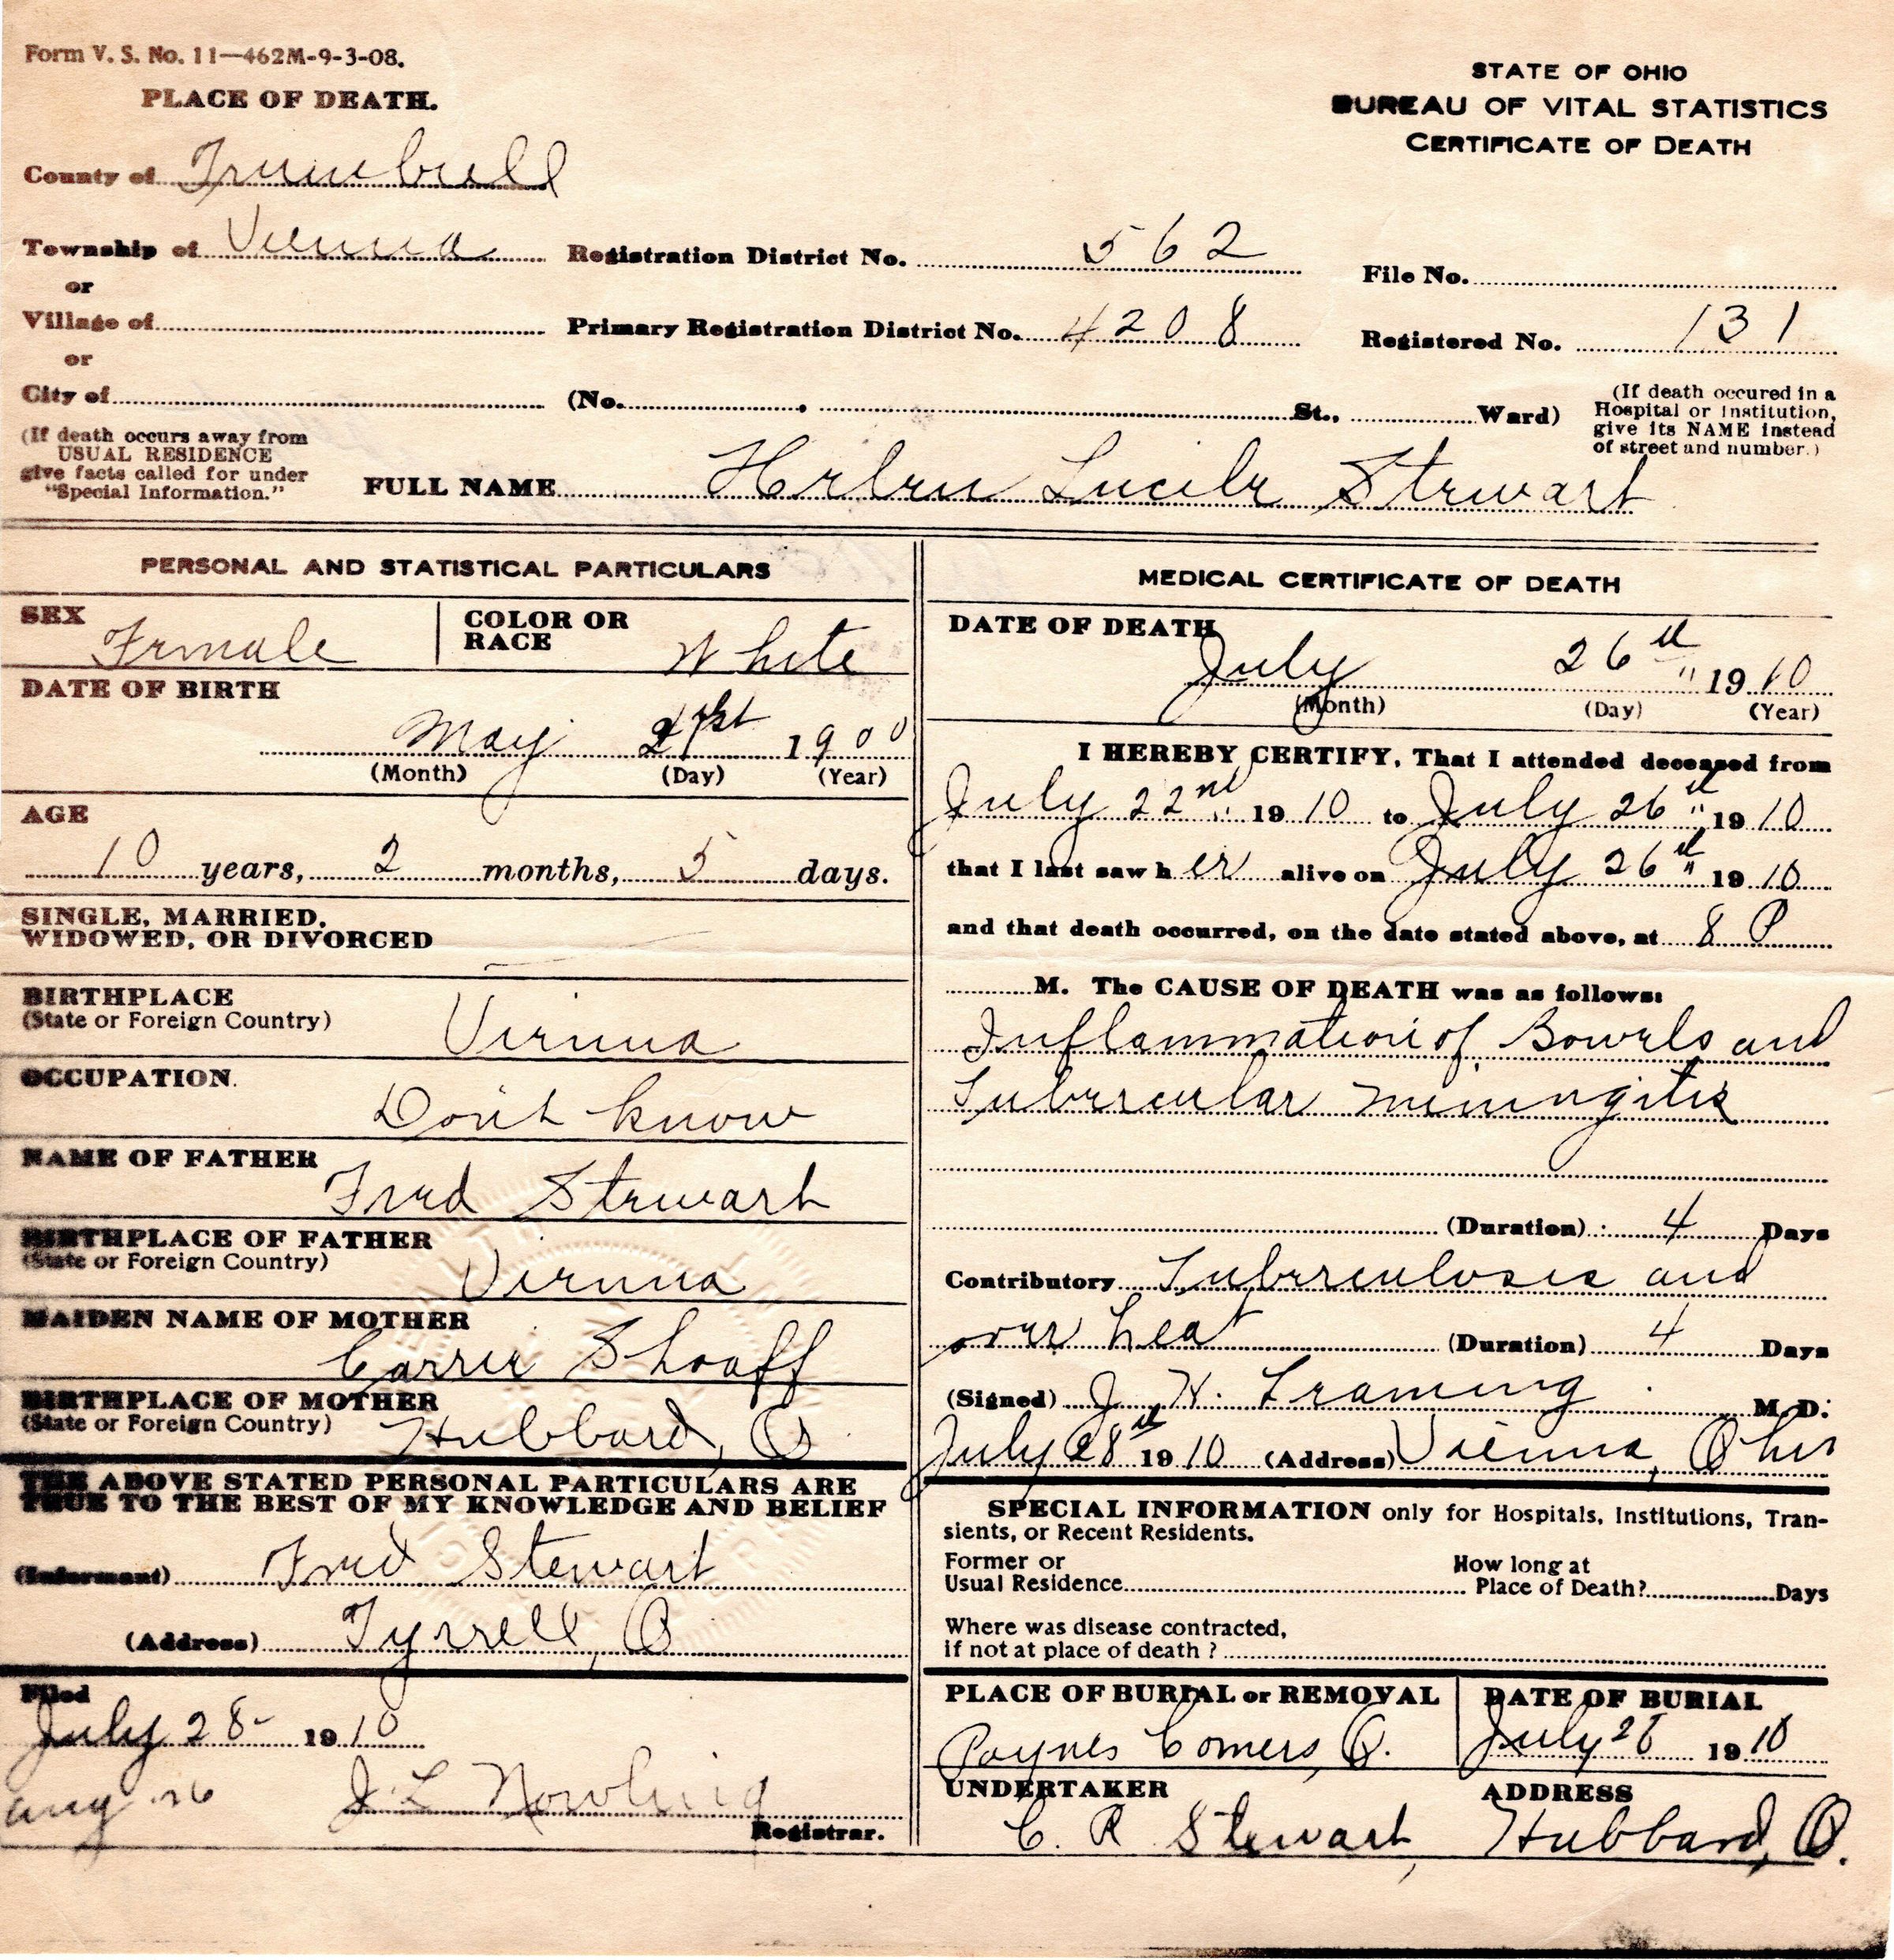 Form V. S. No. 11—462M-9-3-08.
PLACE OF DEATH.
STATE OF OHIO
BUREAU OF VITAL STATISTICS
CERTIFICATE OF DEATH
County of Trumbull
Township of Vienna Registration District No. 562 File No.
or
Village of Primary Registration District No. 4208 Registered No. 131
or
City of (No. , St., Ward)
(If death occured in a
Hospital or Institution,
give its NAME instead
of street and number.)
(If death occurs away from
USUAL RESIDENCE
give facts called for under
"Special Information."
FULL NAME Helen Lucile Stewart
PERSONAL AND STATISTICAL PARTICULARS
SEX
Female
COLOR OR
RACE White
DATE OF BIRTH
May 21st 1900
(Month) (Day) (Year)
AGE
10 years, 2 months, 5 days.
SINGLE, MARRIED,
WIDOWED, OR DIVORCED
BIRTHPLACE
(State or Foreign Country) Vienna
OCCUPATION.
Don't know
NAME OF FATHER
Fred Stewart
BIRTHPLACE OF FATHER
(State or Foreign Country) Vienna
MAIDEN NAME OF MOTHER
Carrie Shoaff
BIRTHPLACE OF MOTHER
(State or Foreign Country) Hubbard, O
THE ABOVE STATED PERSONAL PARTICULARS ARE
TRUE TO THE BEST OF MY KNOWLEDGE AND BELIEF
(Informant) Fred Stewart
(Address) Tyrrell, O
Filed
July 28- 1910
Aug 26 J. L. Nowling
Registrar.
MEDICAL CERTIFICATE OF DEATH
DATE OF DEATH
July 26th 1910
(Month) (Day) (Year)
I HEREBY CERTIFY, That I attended deceased from
July 22nd 1910 to July 26th 1910
that I last saw h er alive on July 26th 1910
and that death occurred, on the date stated above, at 8 P
M. The CAUSE OF DEATH was as follows:
Inflammation of Bowels and
Tubercular Miningitis
(Duration) 4 Days
Contributory Tuberculosis and
over heat (Duration) 4 Days
(Signed) J. H. Framing M.D.
July 28th 1910 (Address) Vienna, Ohio
SPECIAL INFORMATION only for Hospitals, Institutions, Tran-
sients, or Recent Residents.
Former or How long at
Usual Residence Place of Death? Days
Where was disease contracted,
if not at place of death ?
PLACE OF BURIAL or REMOVAL DATE OF BURIAL
Paynes Corners, O. July 28 1910
UNDERTAKER ADDRESS
C. R Stewart, Hubbard, O.